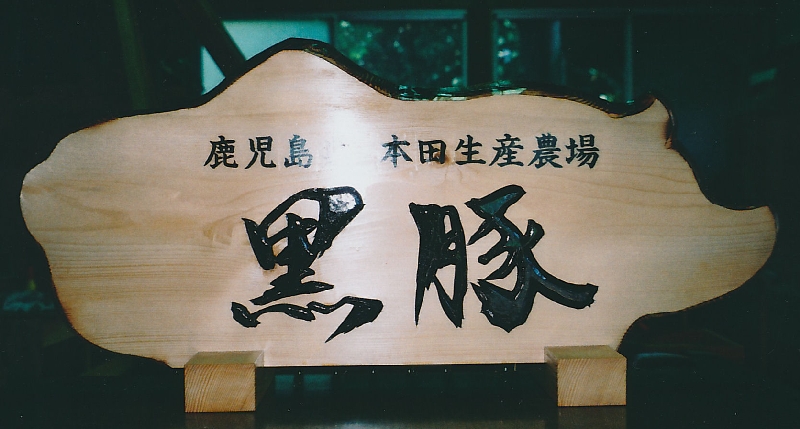 鹿児島 本田生産農場
黒豚